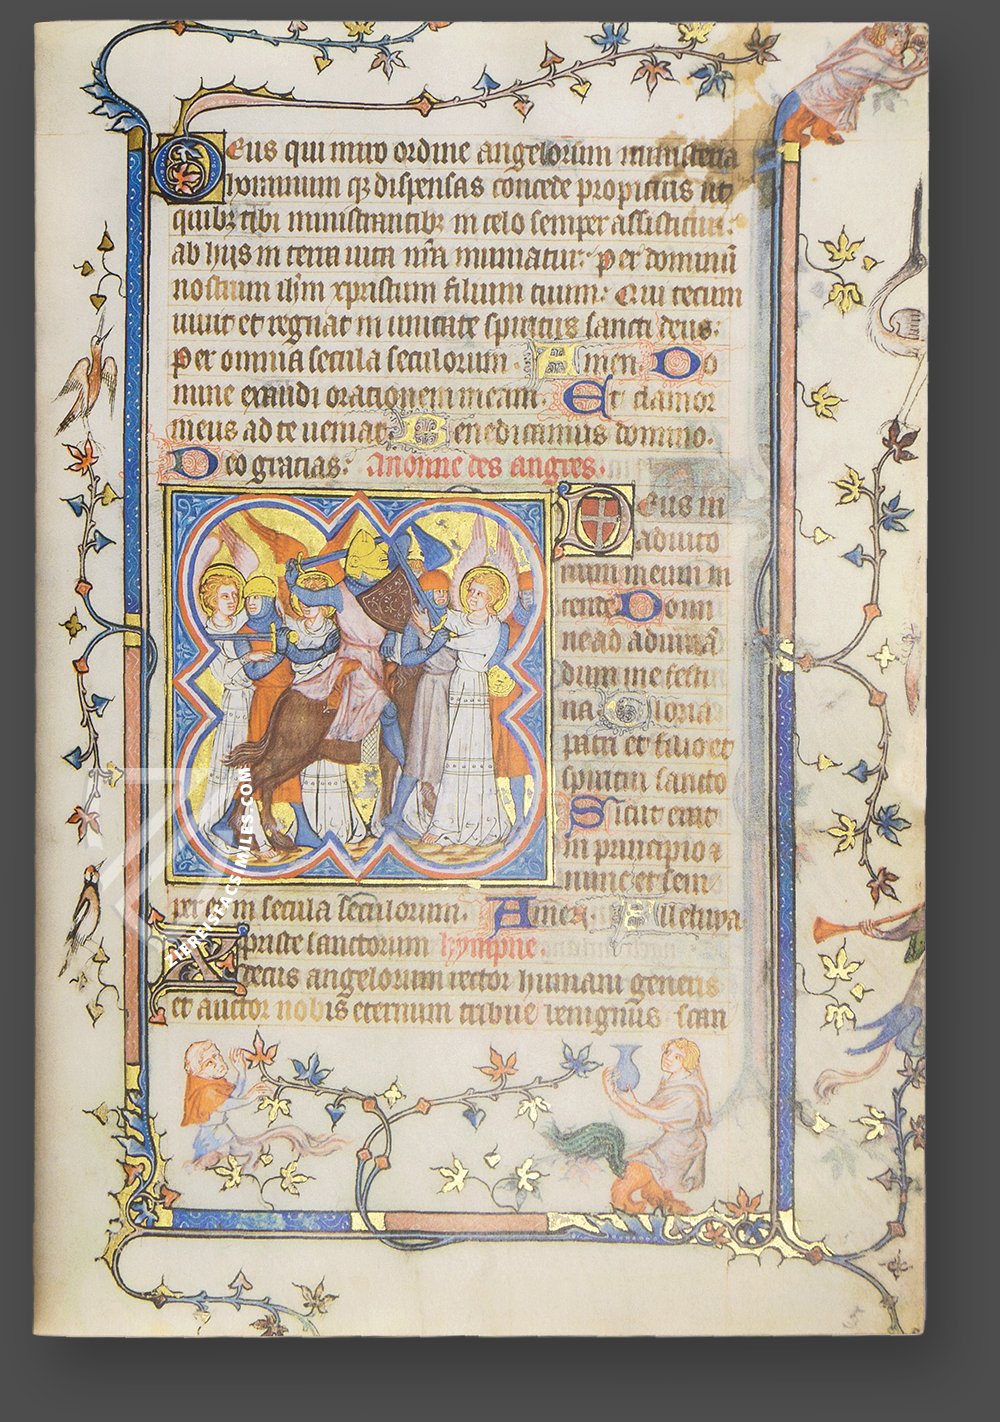 Deus qui miro ordine angelorum ministeria
hominum qȝ dispensas concede propicius ut
quibȝ tibi ministrantibȝ in celo semper assistitur:
ab hijs in terra uita nr̄a muniatur: Per dominū
nostrum ih̄m xpristum filium tuum: Qui tecum
uiuit et regnat in unitate spiritus sancti deus:
Per omnia secula seculorum. Amen. Do
mine exaudi orationem meam. Et clamor
meus ad te ueniat. Benedicamus domino.
Deo gracias: A nonne des angres.
Deus in
adiuto
rium meum in
tende Domi
ne ad adiuuā
dum me festi
na Gloria
patri et filio et
spiritui sancto
Sicut erat
in principio ⁊
nunc et sem
per ⁊ in secula seculorum. Amen. Alleluya.
Xpriste sanctorum hympne.
decus angelorum rector humani generis
et auctor nobis eternum tribue benignus scan
ZIEREISFACSIMILES.COM